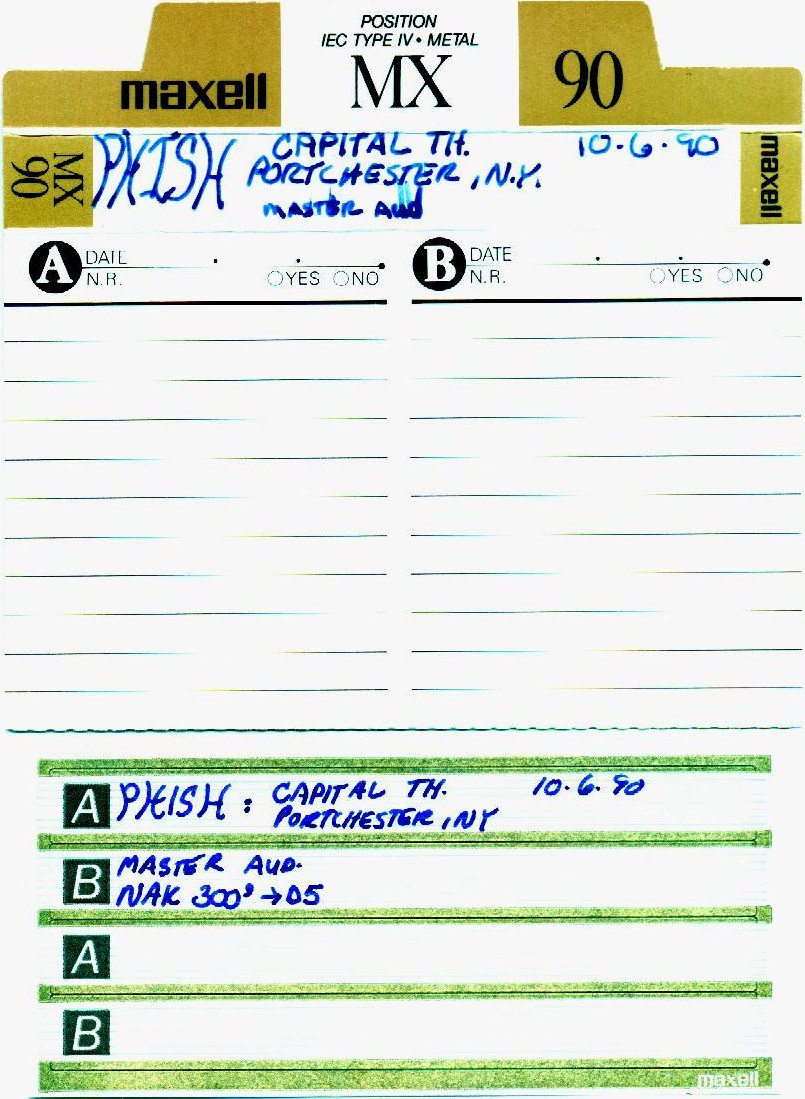 POSITION
IEC TYPE IV • METAL
maxell MX 90
MX 90 PHISH CAPITAL TH. 10·6·90 maxell
PORTCHESTER, N.Y.
MASTER AUD
A DATE . . B DATE . .
N.R. YES NO N.R. YES NO
A PHISH : CAPITAL TH. 10·6·90
PORTCHESTER, NY
B MASTER AUD.
NAK 300's → D5
A
B
maxell